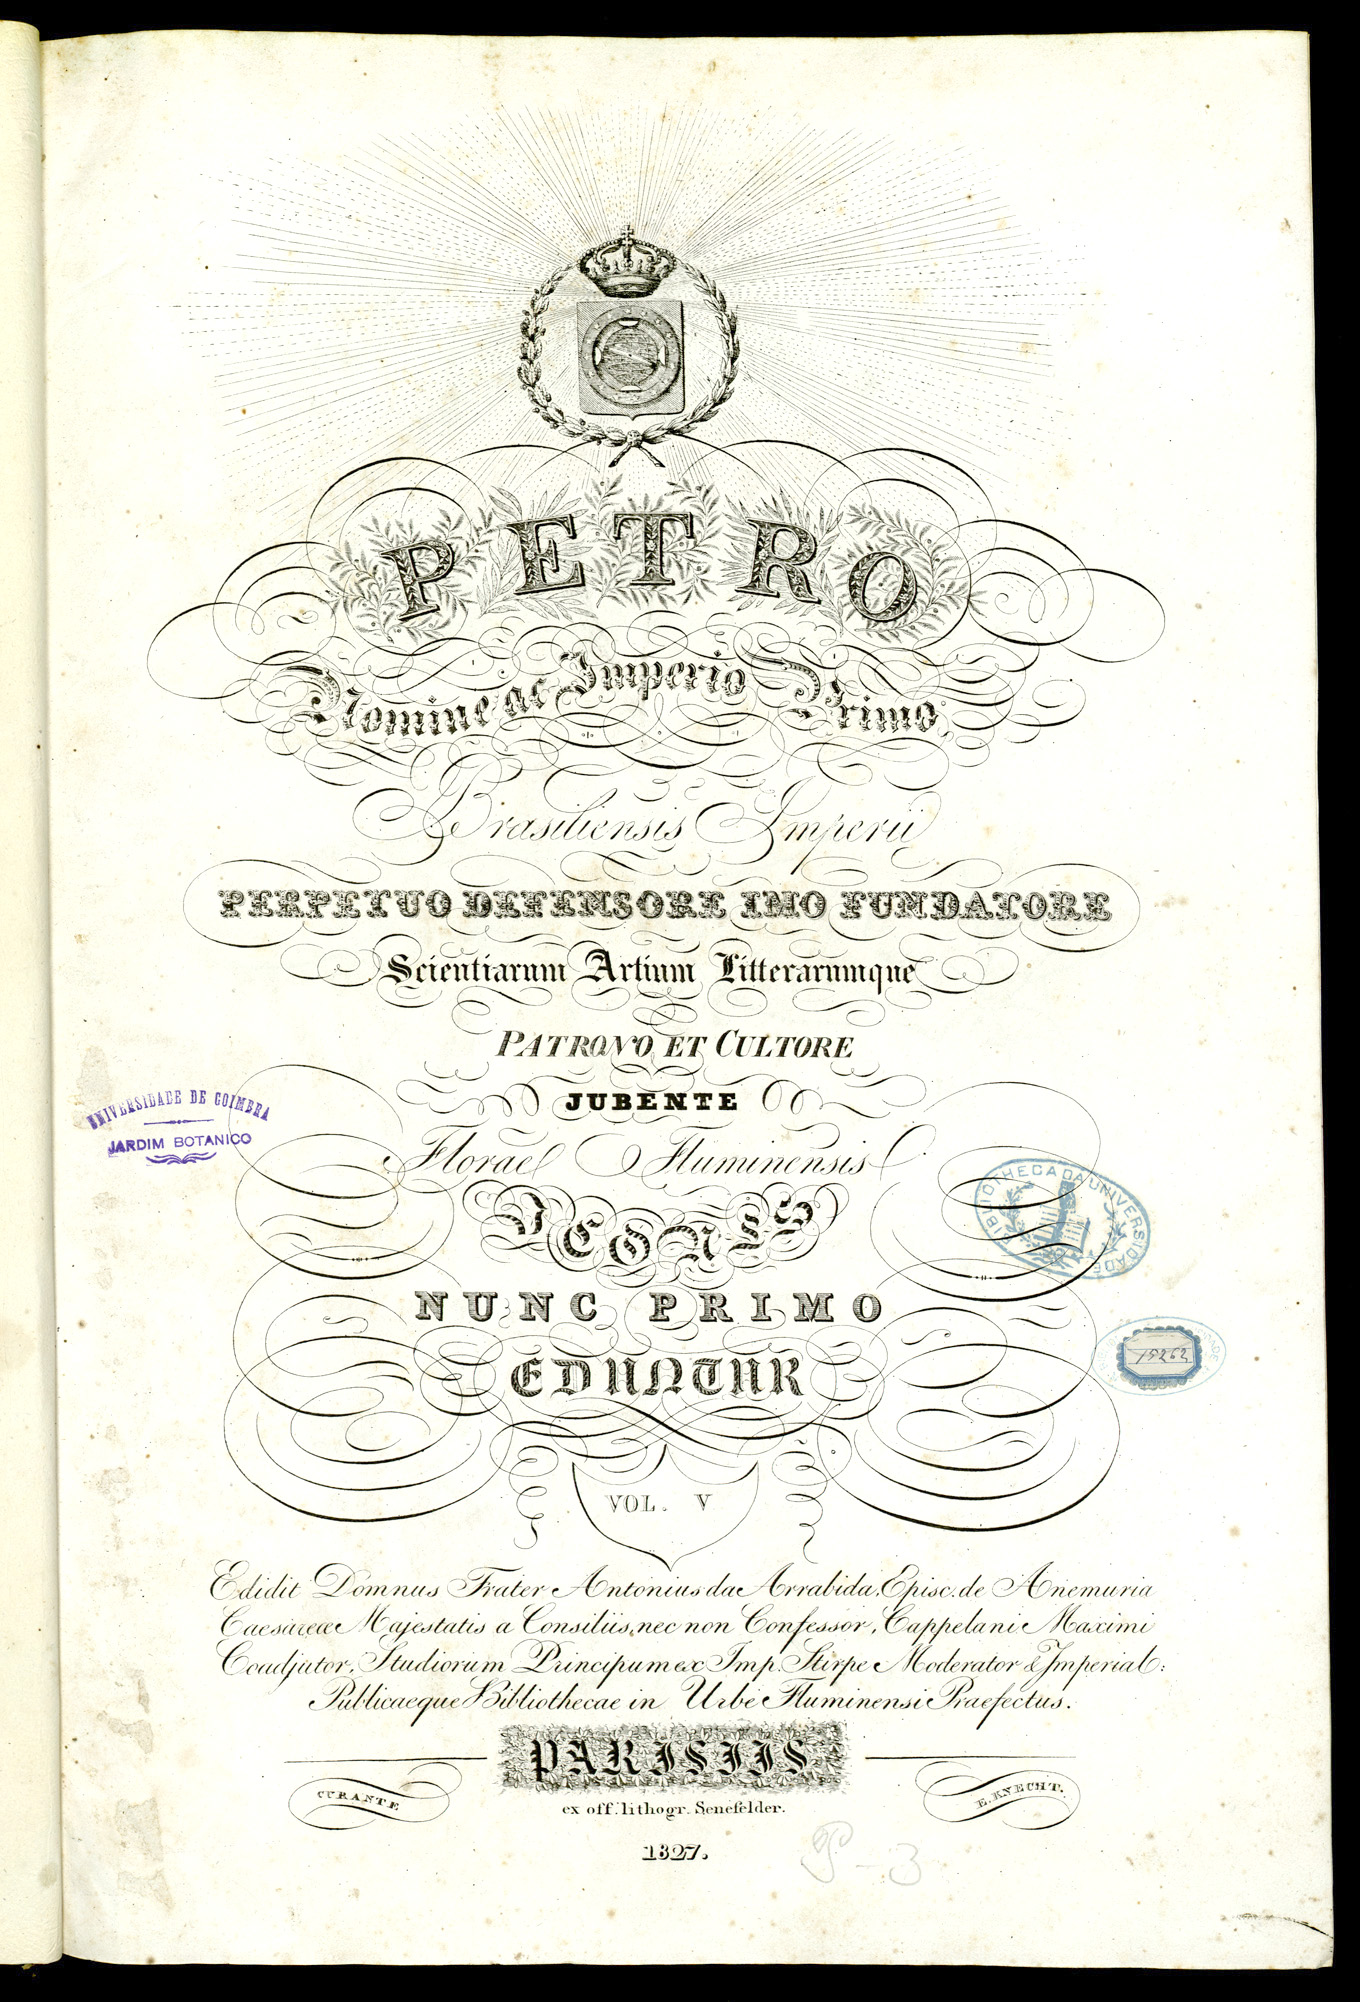 PETRO
Nomine ac Imperio Primo,
Brasiliensis Imperii
PERPETUO DEFENSORE IMO FUNDATORE
Scientiarum Artium Litterarumque
PATRONO ET CULTORE
JUBENTE
Florae Fluminensis
ICONES
NUNC PRIMO
EDUNTUR
VOL. V
Edidit Domnus Frater Antonius da Arrabida, Episc. de Anemuria
Caesareæ Majestatis a Consiliis, nec non Confessor, Cappelani Maximi
Coadjutor, Studiorum Principum ex Imp. Stirpe Moderator & Imperial:
Publicaeque Bibliothecae in Urbe Fluminensi Praefectus.
PARISIIS
CURANTE
E. KNECHT.
ex off. lithogr. Senefelder.
1827.
P-3
UNIVERSIDADE DE COIMBRA
JARDIM BOTANICO
BIBLIOTHECA DA UNIVERSIDADE
15262